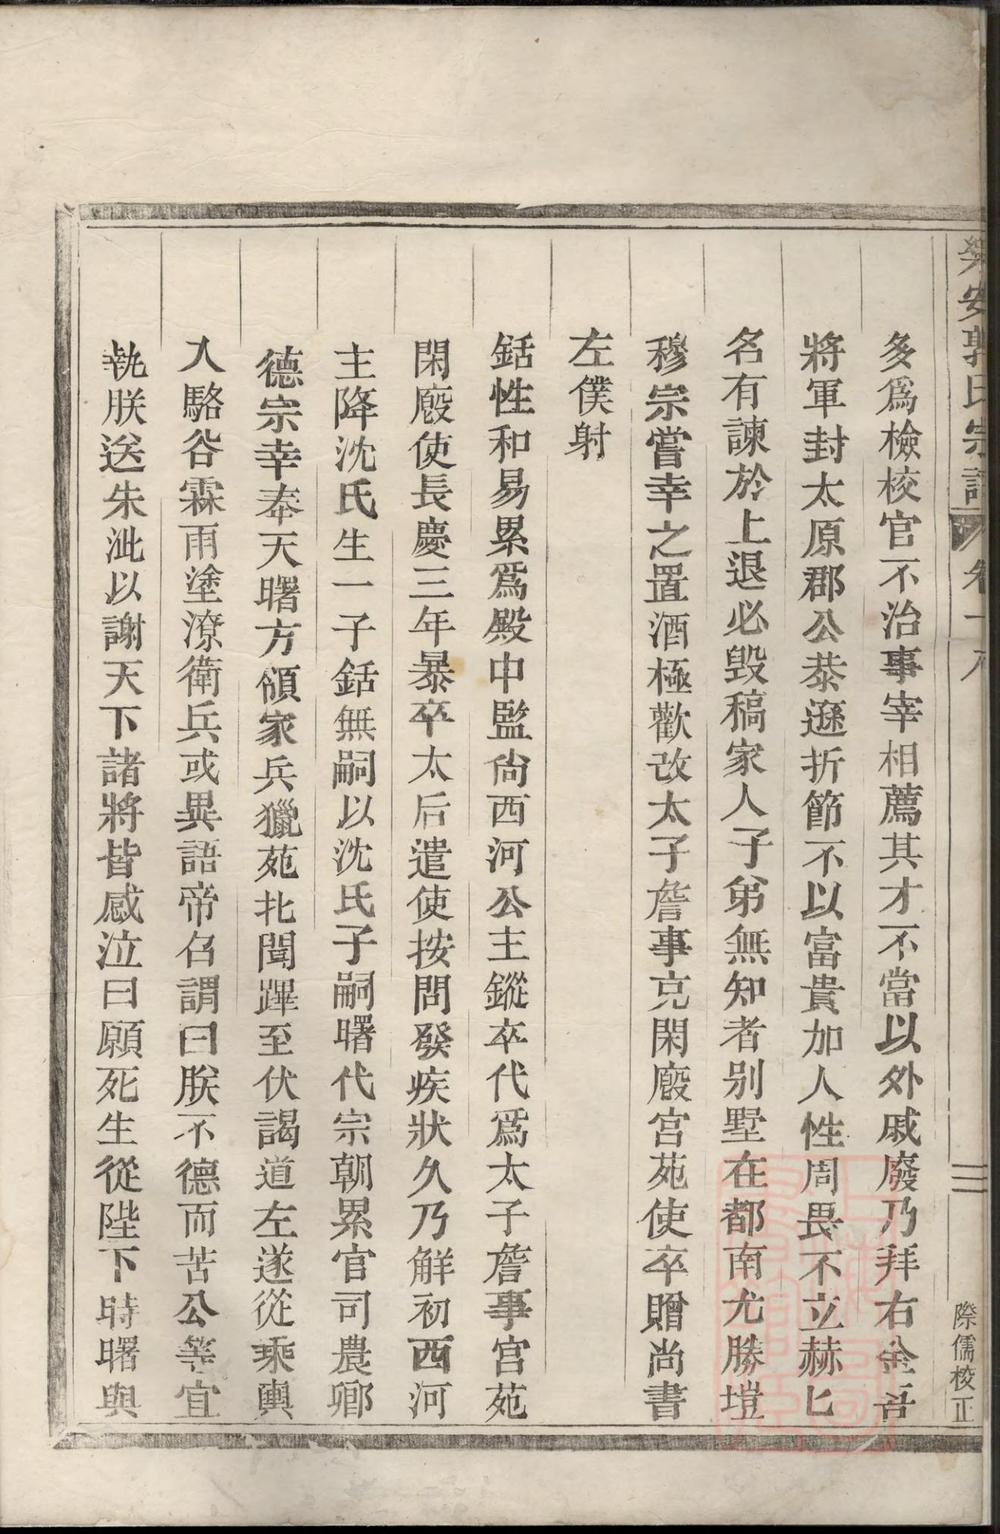 樂安郭氏宗譜 卷十八 二 際儒校正
多爲檢校官不治事宰相薦其才不當以外戚廢乃拜右金吾
將軍封太原郡公恭遜折節不以富貴加人性周畏不立赫匕
名有諫於上退必毀稿家人子弟無知者别墅在都南尤勝塏
穆宗嘗幸之置酒極歡改太子詹事克閑廄宮苑使卒贈尚書
左僕射
銛性和易累爲殿中監尙西河公主鏦卒代爲太子詹事宮苑
閑廄使長慶三年暴卒太后遣使按問發疾狀久乃解初西河
主降沈氏生一子銛無嗣以沈氏子嗣曙代宗朝累官司農卿
德宗幸奉天曙方領家兵獵苑北聞蹕至伏謁道左遂從乘輿
入駱谷霖雨塗潦衛兵或異語帝召謂曰朕不德而苦公等宜
執朕送朱泚以謝天下諸將皆感泣曰願死生從陛下時曙與